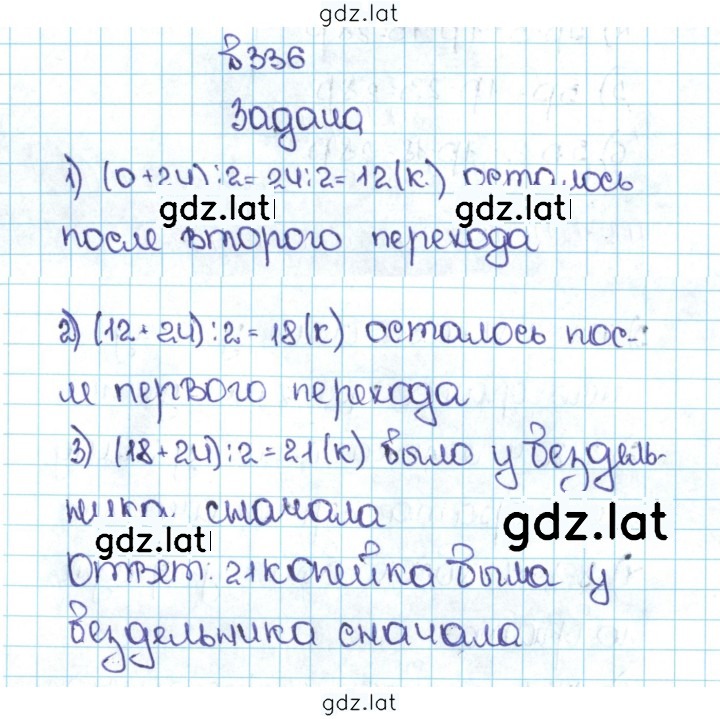 gdz.lat
в 336
Задача
1) (0+24):2=24:2=12(к.) осталось
gdz.lat gdz.lat
после второго перехода
2) (12+24):2=18(к) осталось пос-
ле первого перехода
3) (18+24):2=21(к) было у бездель-
ника сначала
gdz.lat
gdz.lat
Ответ: 21 копейка была у
бездельника сначала
gdz.lat